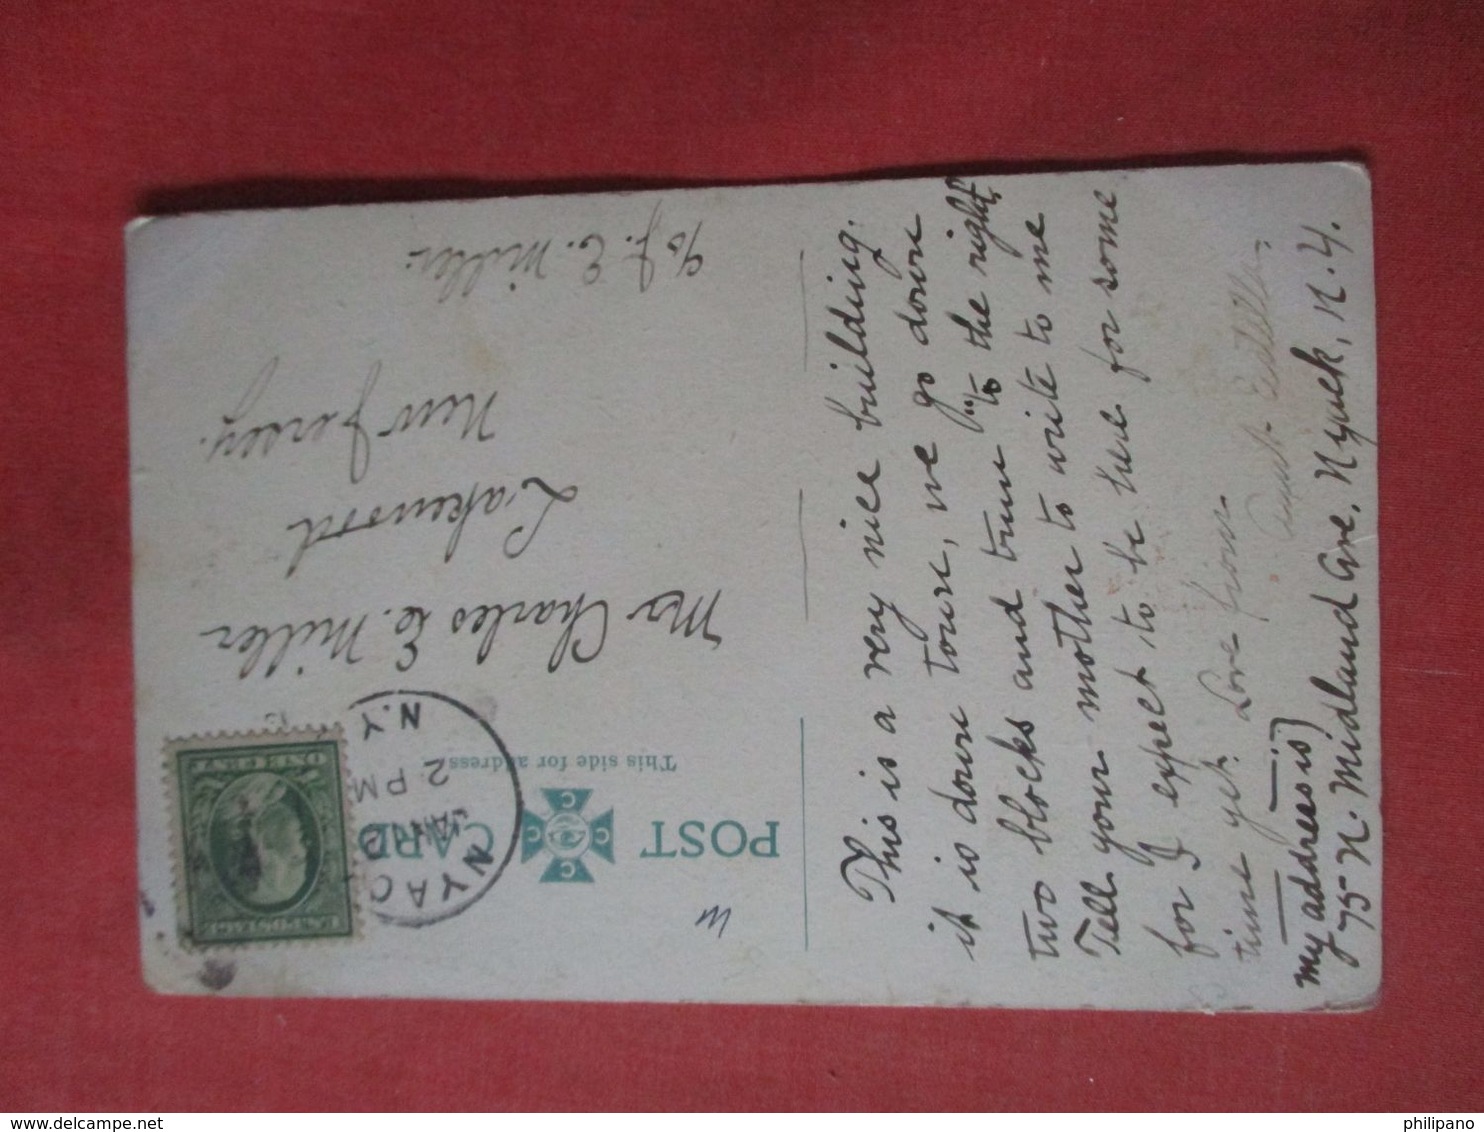 This is a very nice building.
it is down town, we go down
two blocks and turn "to" the right
Tell your mother to write to me
for I expect to be there for some
time yet. Love from
Aunt Estella
(my address is)
75 N. Midland Ave. Nyack, N.Y.
POST CARD
This side for address
NYACK
JAN
2 PM
N.Y.
U.S. POSTAGE
ONE CENT
M
Mr Charles E. Miller
Lakewood
New Jersey.
% J. E. Miller.
philipano